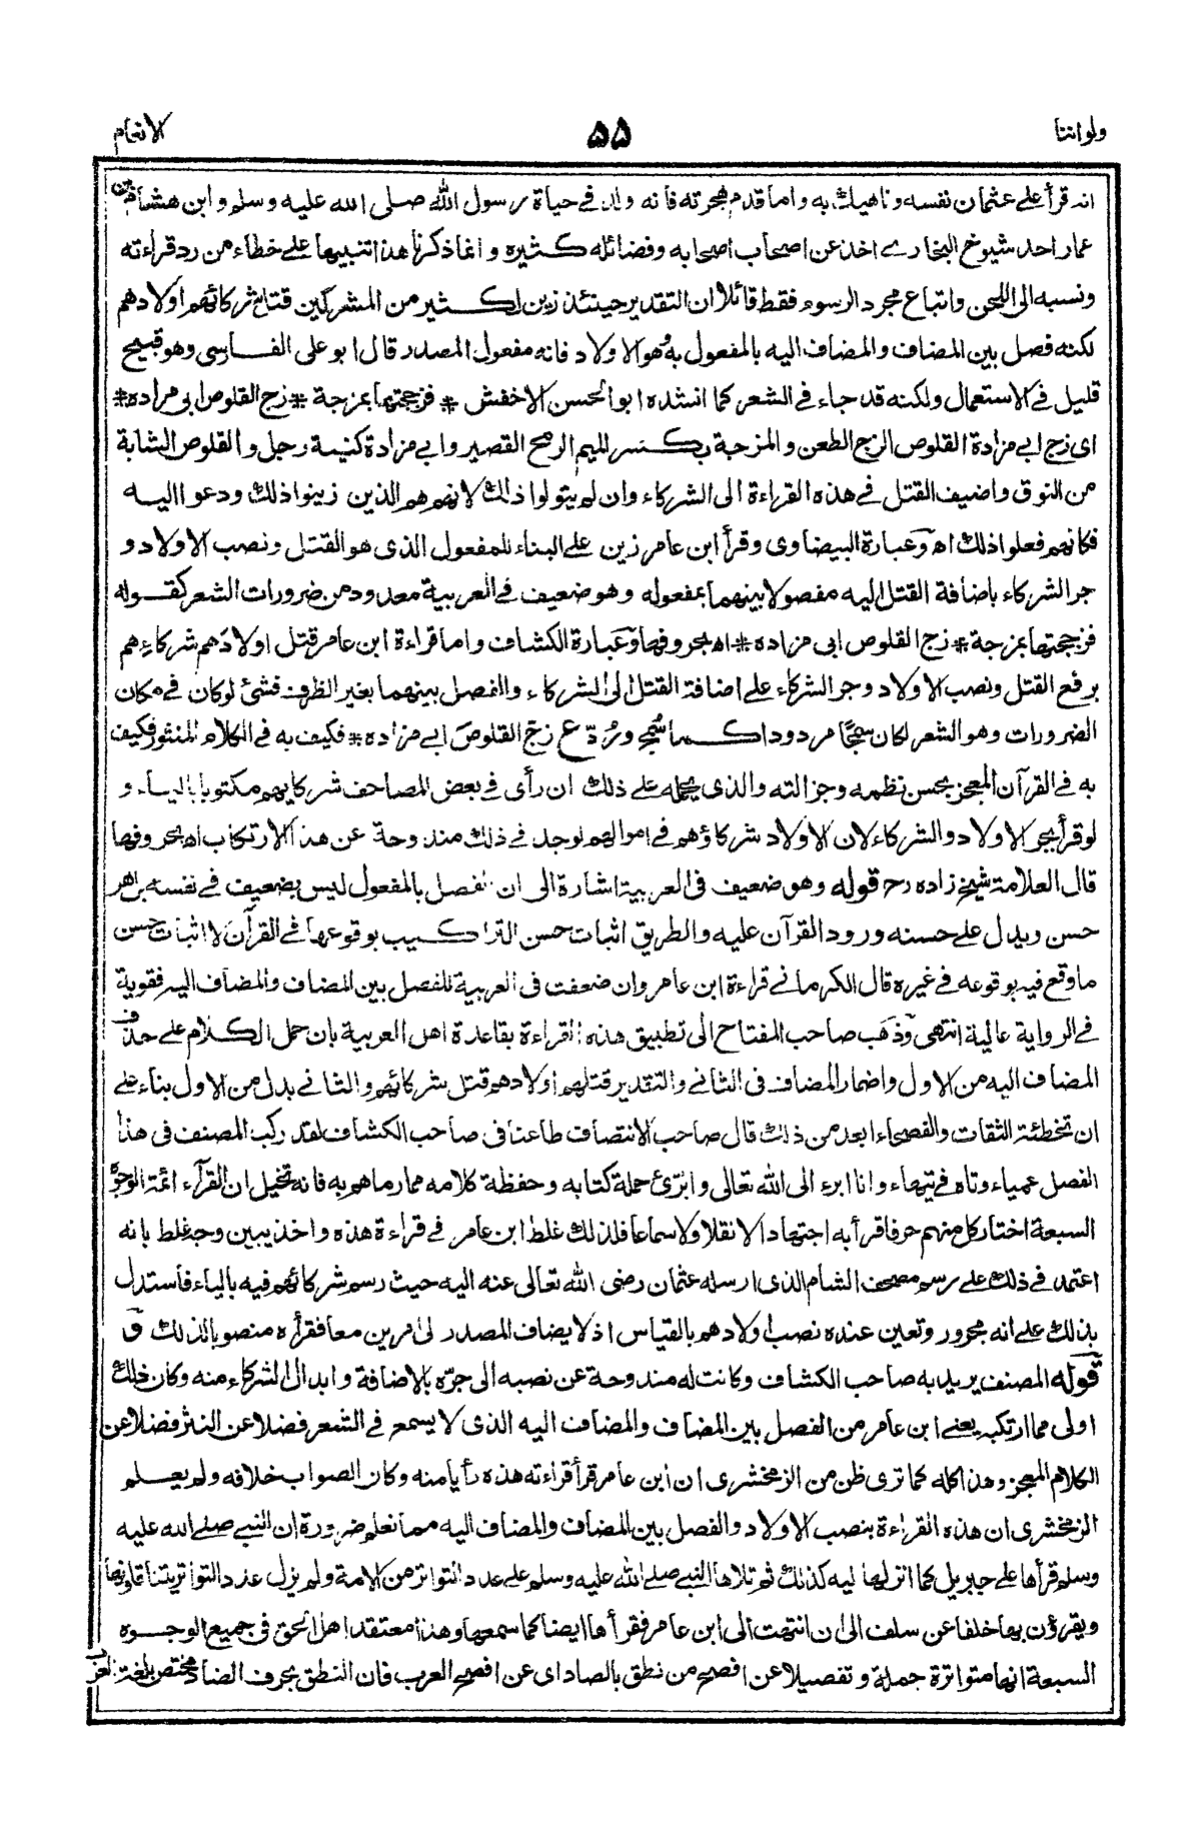 ولواننا ۵۵ الانعام
انه قرأ على عثمان نفسه وناهيك به واما قدم هجرته فانه ولد في حياة رسول الله صلى الله عليه وسلم وابن هشام بن
عمار احد شيوخ البخاري اخذ عن اصحاب اصحابه وفضائله كثيره وانما ذكرنا هذا تنبيها على خطاء من رد قراءته
ونسبه الى اللحن واتباع مجرد الرسوم فقط قائلا ان التقدير حينئذ زين لكثير من المشركين قتل شركائهم اولادهم
لكنه فصل بين المضاف والمضاف اليه بالمفعول به وهو الاولاد فانه مفعول المصدر قال ابو على الفارسى وهو قبيح
قليل في الاستعمال ولكنه قد جاء في الشعر كما انشده ابو الحسن الاخفش * فزججتها بمزجة * زج القلوص ابى مزاده *
اى زج ابي مزادة القلوص الزج الطعن والمزجة بكسر الميم الرمح القصير وابي مزادة كنية رجل والقلوص الشابة
من النوق واضيف القتل في هذه القراءة الى الشركاء وان لم يتولوا ذلك لانهم هم الذين زينوا ذلك ودعوا اليه
فكانهم فعلوا ذلك اه وعبارة البيضاوى وقرأ ابن عامر زين على البناء للمفعول الذى هو القتل ونصب الاولاد و
جر الشركاء باضافة القتل اليه مفصولا بينهما بمفعوله وهو ضعيف في العربية معدود من ضرورات الشعر كقوله
فزججتها بمزجة * زج القلوص ابى مزاده * اه بحروفها وعبارة الكشاف واما قراءة ابن عامر قتل اولادَهم شركاءِهم
برفع القتل ونصب الاولاد وجر الشركاء على اضافة القتل الى الشركاء والفصل بينهما بغير الظرف فشئ لوكان في مكان
الضرورات وهو الشعر لكان سمجًا مردودا كما سُمِجَ ورُدَّ ع زج القلوصَ ابي مزاده * فكيف به في الكلام المنثور فكيف
به في القرآن المعجز بحسن نظمه وجزالته والذى حمله على ذلك ان رأى في بعض المصاحف شركايهم مكتوبا بالياء و
لو قرأ بجر الاولاد والشركاء لان الاولاد شركاؤهم في اموالهم لوجد في ذلك مندوحة عن هذا الارتكاب اه بحروفها
قال العلامة شيخ زاده رح قوله وهو ضعيف فى العربية اشارة الى ان الفصل بالمفعول ليس بضعيف في نفسه بل هو
حسن ويدل على حسنه ورود القرآن عليه والطريق اثبات حسن التراكيب بوقوعها في القرآن لا اثبات حسن
ما وقع فيه بوقوعه في غيره قال الكرماني قراءة ابن عامر وان ضعفت فى العربية للفصل بين المضاف والمضاف اليه فقوية
في الرواية عالية انتهى وذهب صاحب المفتاح الى تطبيق هذه القراءة بقاعدة اهل العربية بان حمل الكلام على حذف
المضاف اليه من الاول واضمار المضاف فى الثاني والتقدير قتلهم اولادهم قتل شركائهم والثاني بدل من الاول بناء على
ان تخطئة الثقات والفصحاء ابعد من ذلك قال صاحب الانتصاف طاعنا فى صاحب الكشاف لقد ركب المصنف فى هذا
الفصل عمياء وتاه في تيهاء وانا ابرء الى الله تعالى وابرّئ حملة كتابه وحفظة كلامه مما رماهم به فانه تخيل ان القراء ائمة الوجوه
السبعة اختار كل منهم حرفا قرأ به اجتهادا لا نقلا ولا سماعا فلذلك غلط ابن عامر في قراءة هذه واخذ يبين وجه غلط بانه
اعتمد في ذلك على رسم مصحف الشام الذى ارسله عثمان رضى الله تعالى عنه اليه حيث رسم شركائهم فيه بالياء فاستدل
بذلك على انه مجرور وتعين عنده نصب اولادهم بالقياس اذ لا يضاف المصدر الى امرين معا فقرأه منصوبا لذلك ق
قوله المصنف يريد به صاحب الكشاف وكانت له مندوحة عن نصبه الى جرّه بالاضافة وابدال الشركاء منه وكان ذلك
اولى مما ارتكبه يعني ابن عامر من الفصل بين المضاف والمضاف اليه الذى لا يسمع في الشعر فضلا عن النثر فضلا عن
الكلام المعجز وهذا كله كما ترى ظن من الزمخشرى ان ابن عامر قرأ قراءته هذه رأيا منه وكان الصواب خلافه ولم يعلم
الزمخشرى ان هذه القراءة بنصب الاولاد والفصل بين المضاف والمضاف اليه مما نعلم ضرورة ان النبي صلى الله عليه
وسلم قرأها على جبريل كما انزلها اليه كذلك ثم تلاها النبي صلى الله عليه وسلم على عدد التواتر من الامة ولم يزل عدد التواتر يتناقلونها
ويقرؤن بها خلفا عن سلف الى ان انتهت الى ابن عامر فقرأها ايضا كما سمعها وهذا معتقد اهل الحق فى جميع الوجوه
السبعة انها متواترة جملة وتفصيلا عن افصح من نطق بالصاد اى عن افصح العرب فان النطق بحرف الضاد مختص بلغة العرب